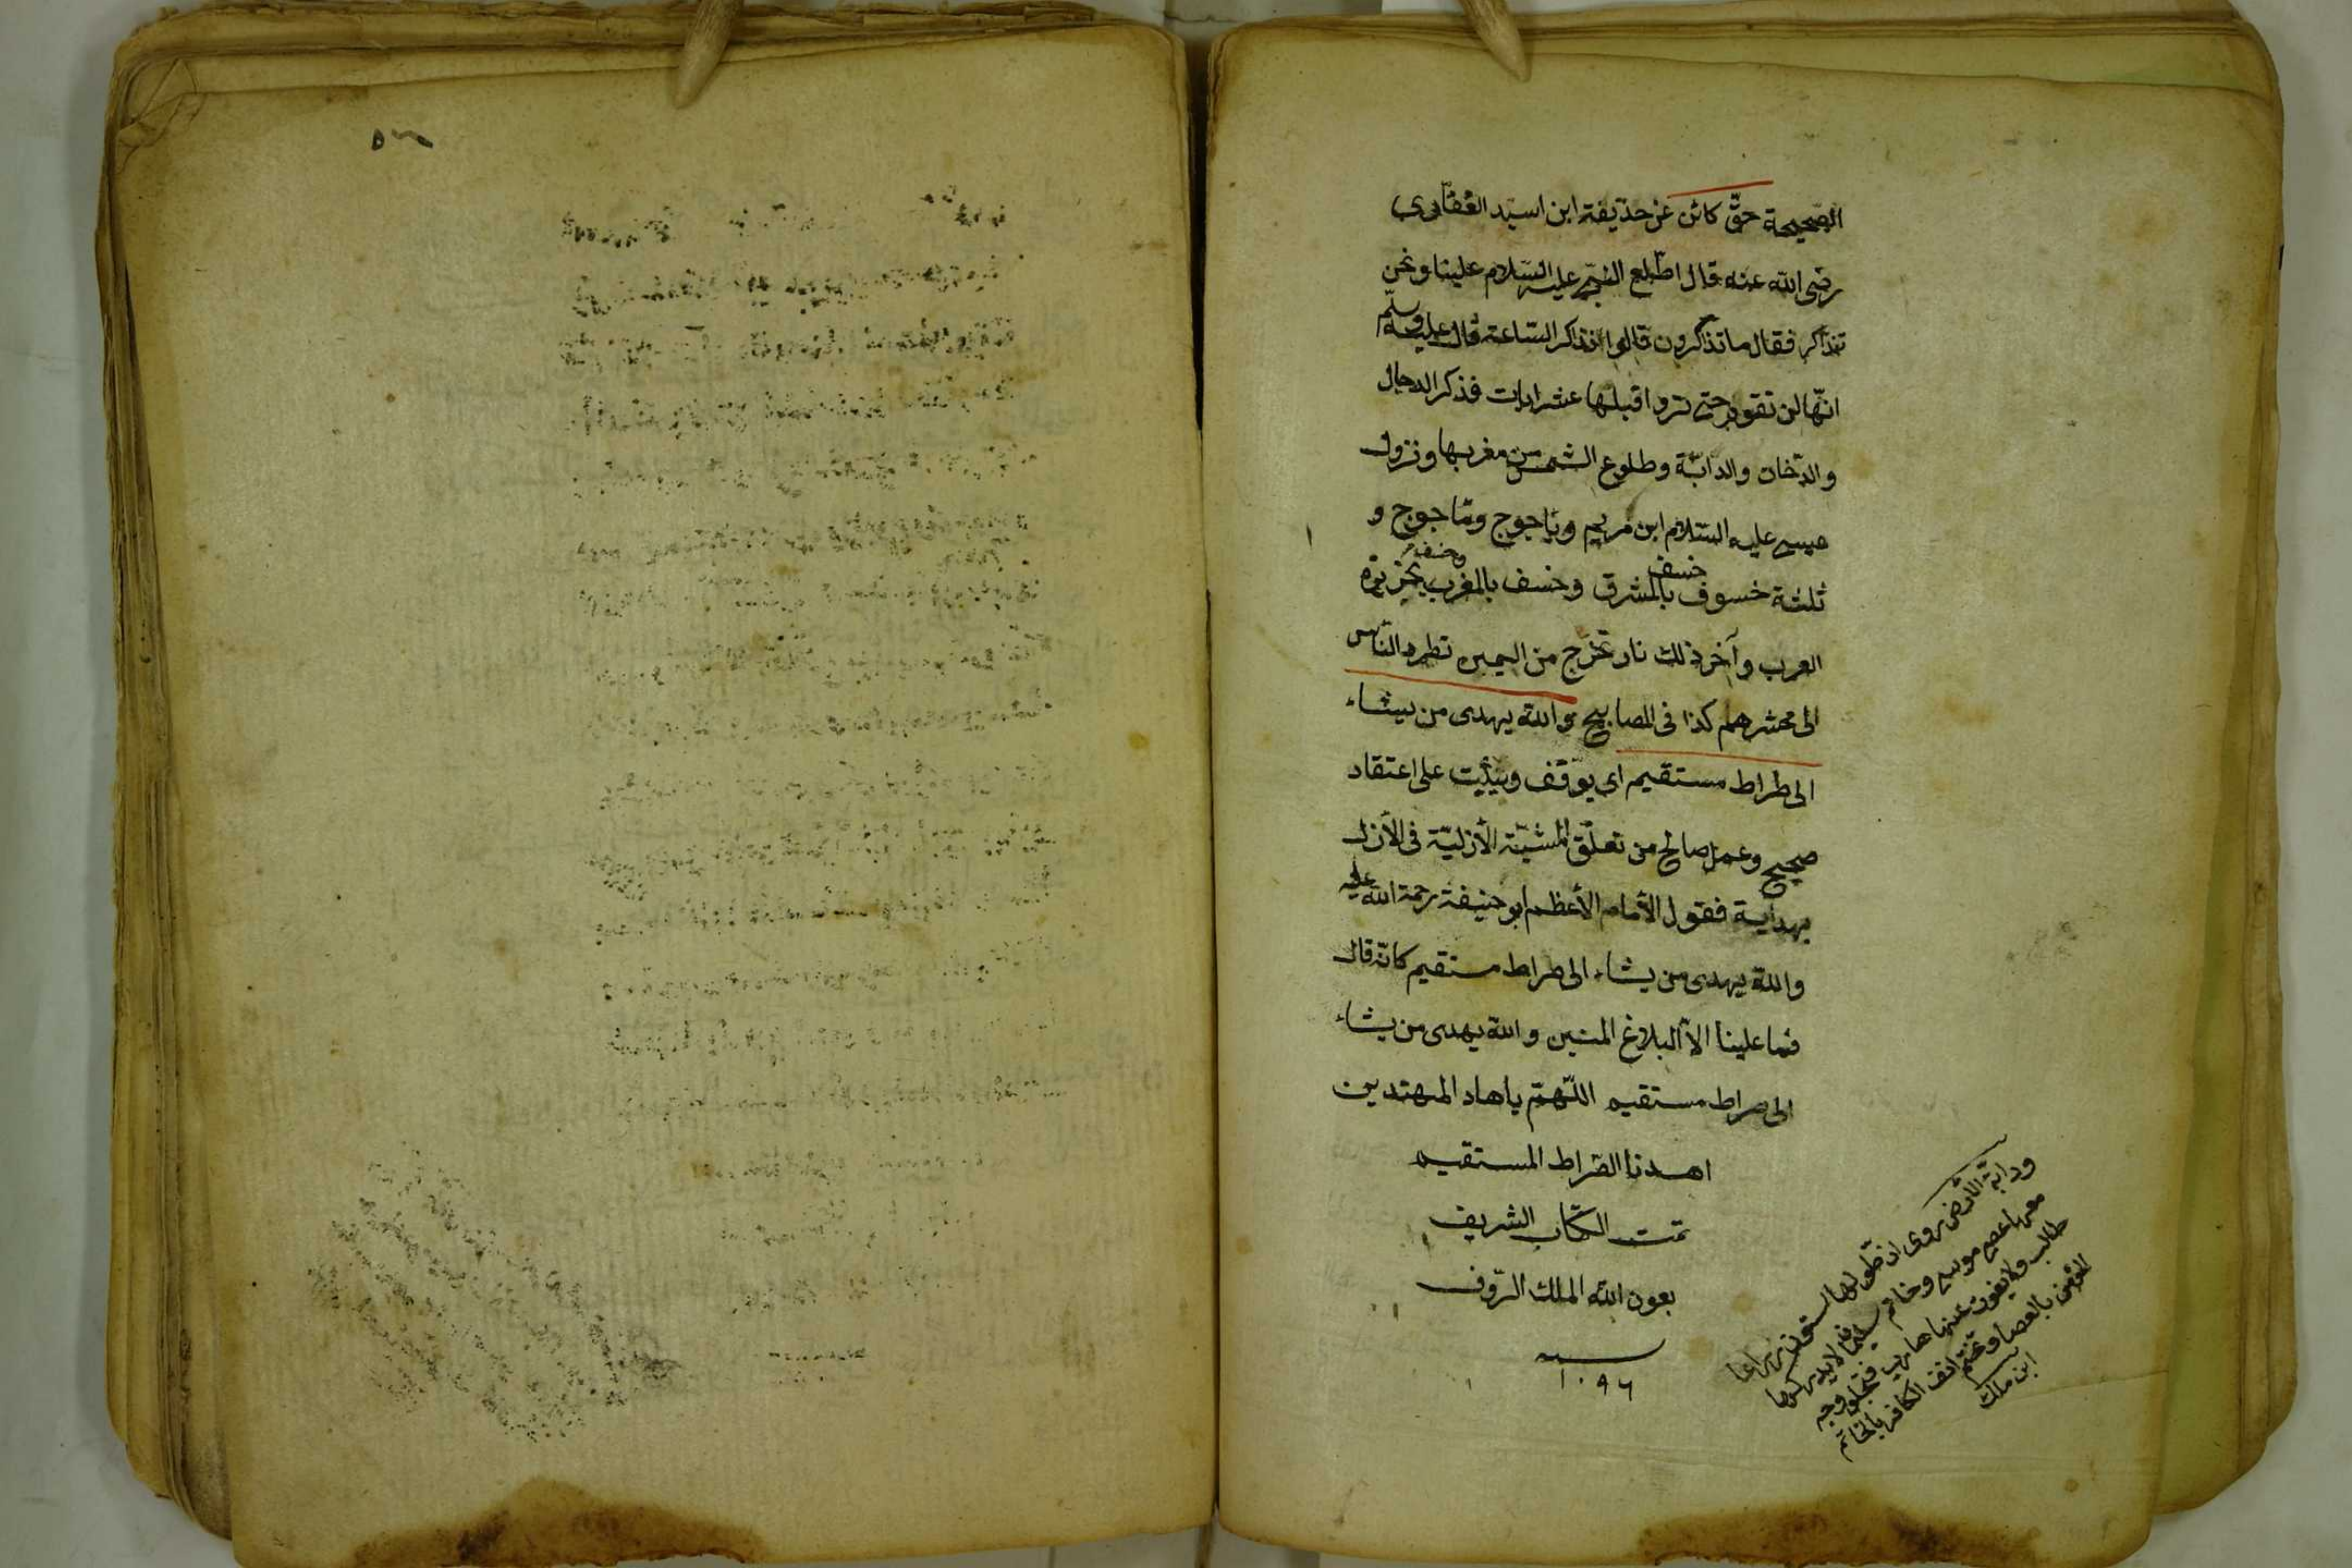 الصحيحة حقّ كائن عن حذيفة ابن اسيد الغفاري
رضى الله عنه قال اطّلع النبيّ عليه السّلام علينا ونحن
نتذاكر فقال ما تذكرون قالوا نذكر السّاعة قال عليه وسلّم
انّها لن تقوم حتى تروا قبلها عشر ايات فذكر الدجال
والدّخان والدابّة وطلوع الشمس من مغربها ونزول
عيسى عليه السّلام ابن مريم وياجوج وماجوج و
ثلثة خسوف خسف بالمشرق وخسف بالمغرب وخسف بجزيرة
العرب وآخر ذلك نار تخرج من اليمن تطرد النّاس
الى محشرهم كذا فى المصابيح والله يهدى من يشاء
الى صراط مستقيم اى يوفّق ويثبّت على اعتقاد
صحيح وعمل صالح من تعلّق المشيّة الأزليّة فى الأزل
بهداية فقول الأمام الأعظم ابو حنيفة رحمة الله عليه
والله يهدى من يشاء الى صراط مستقيم كانّه قال
فما علينا الاّ البلاغ المبين والله يهدى من يشاء
الى صراط مستقيم اللّهمّ ياهاد المهتدين
اهدنا الصّراط المستقيم
تمت الكتاب الشريف
بعون الله الملك الرّوف
سنه
١٠٩٦
ودابّة الارض روى ان طولها ستون ذراعا
معها عصى موسى وخاتم سليمان لا يدركها
طالب ولا يفوت عنها هارب فتجلو وجه
المؤمن بالعصا وتختم انف الكافر بالخاتم
ابن ملك